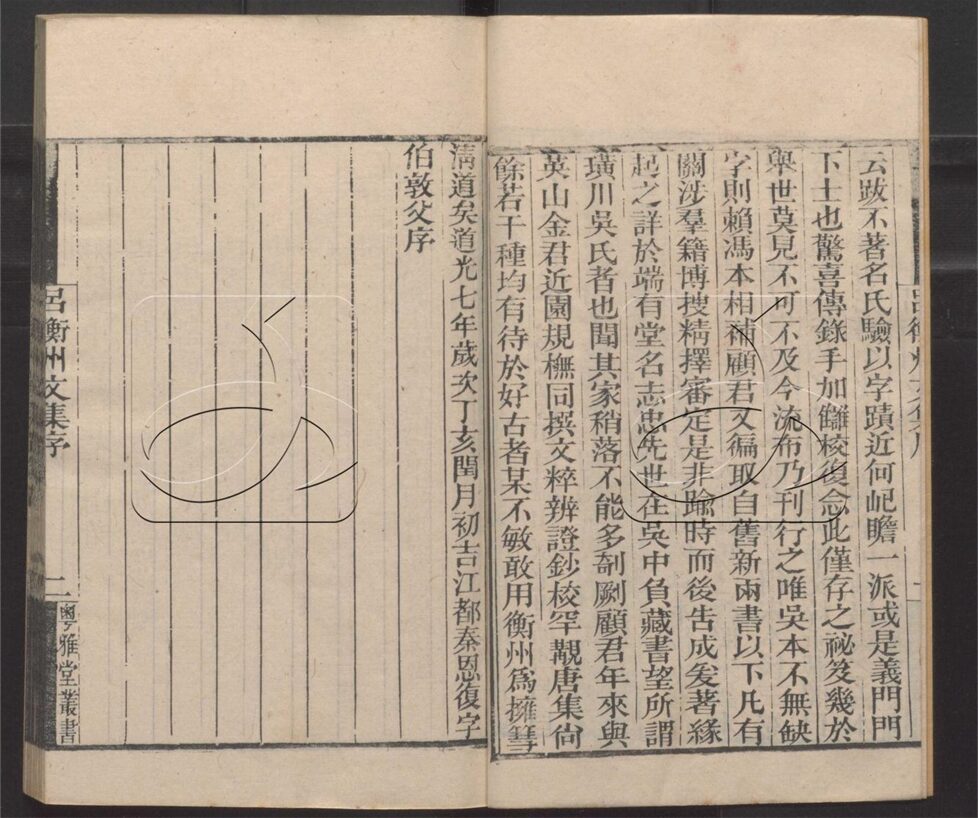 云跋不著名氏驗以字蹟近何屺瞻一派或是義門門
下士也驚喜傳錄手加讎校復念此僅存之祕笈幾於
舉世莫見不可不及今流布乃刊行之唯吳本不無缺
字則賴馮本相補顧君又徧取自舊新兩書以下凡有
關涉羣籍博搜精擇審定是非踰時而後告成爰著緣
起之詳於端有堂名志忠先世在吳中負藏書望所謂
璜川吳氏者也聞其家稍落不能多剞劂顧君年來與
英山金君近園規橅同撰文粹辨證鈔校罕覯唐集尙
餘若干種均有待於好古者某不敏敢用衡州爲擁篲
淸道矣道光七年歲次丁亥閏月初吉江都秦恩復字
伯敦父序
呂衡州文集序
二
粵雅堂叢書